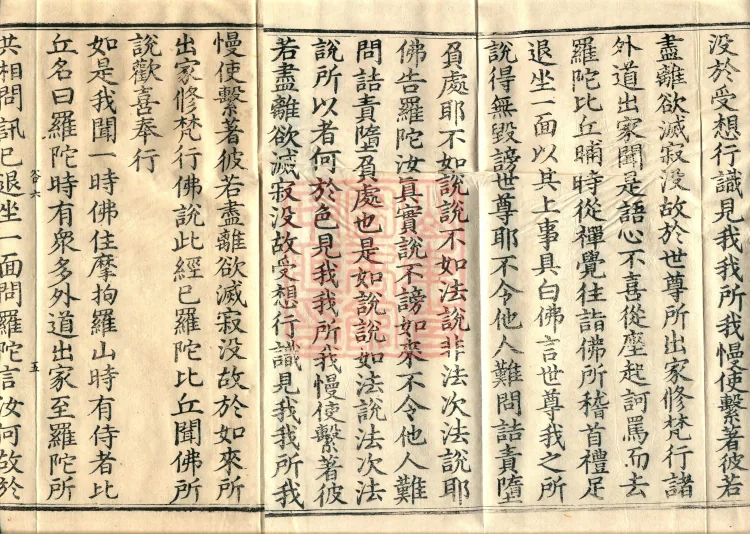 没於受想行識見我我所我慢使繫著彼若
盡離欲滅寂没故於世尊所出家修梵行諸
外道出家聞是語心不喜從座起訶罵而去
羅陀比丘晡時從禪覺往詣佛所稽首禮足
退坐一面以其上事具白佛言世尊我之所
說得無毀謗世尊耶不令他人難問詰責墮
負處耶不如說說不如法說非法次法說耶
佛告羅陀汝真實說不謗如來不令他人難
問詰責墮負處也是如說說如法說法次法
說所以者何於色見我我所我慢使繫著彼
若盡離欲滅寂没故受想行識見我我所我
慢使繫著彼若盡離欲滅寂没故於如來所
出家修梵行佛說此經已羅陀比丘聞佛所
說歡喜奉行
如是我聞一時佛住摩拘羅山時有侍者比
丘名曰羅陀時有衆多外道出家至羅陀所
共相問訊已退坐一面問羅陀言汝何故於
五